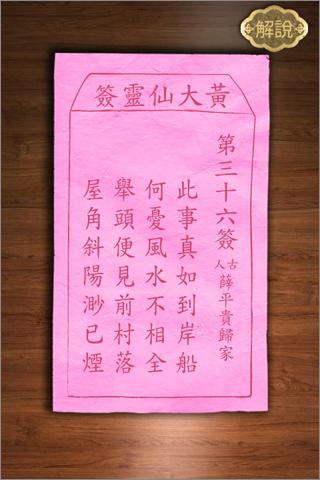 解說
黃大仙靈簽
第三十六簽
古人
薛平貴歸家
此事真如到岸船
何憂風水不相全
舉頭便見前村落
屋角斜陽渺已煙